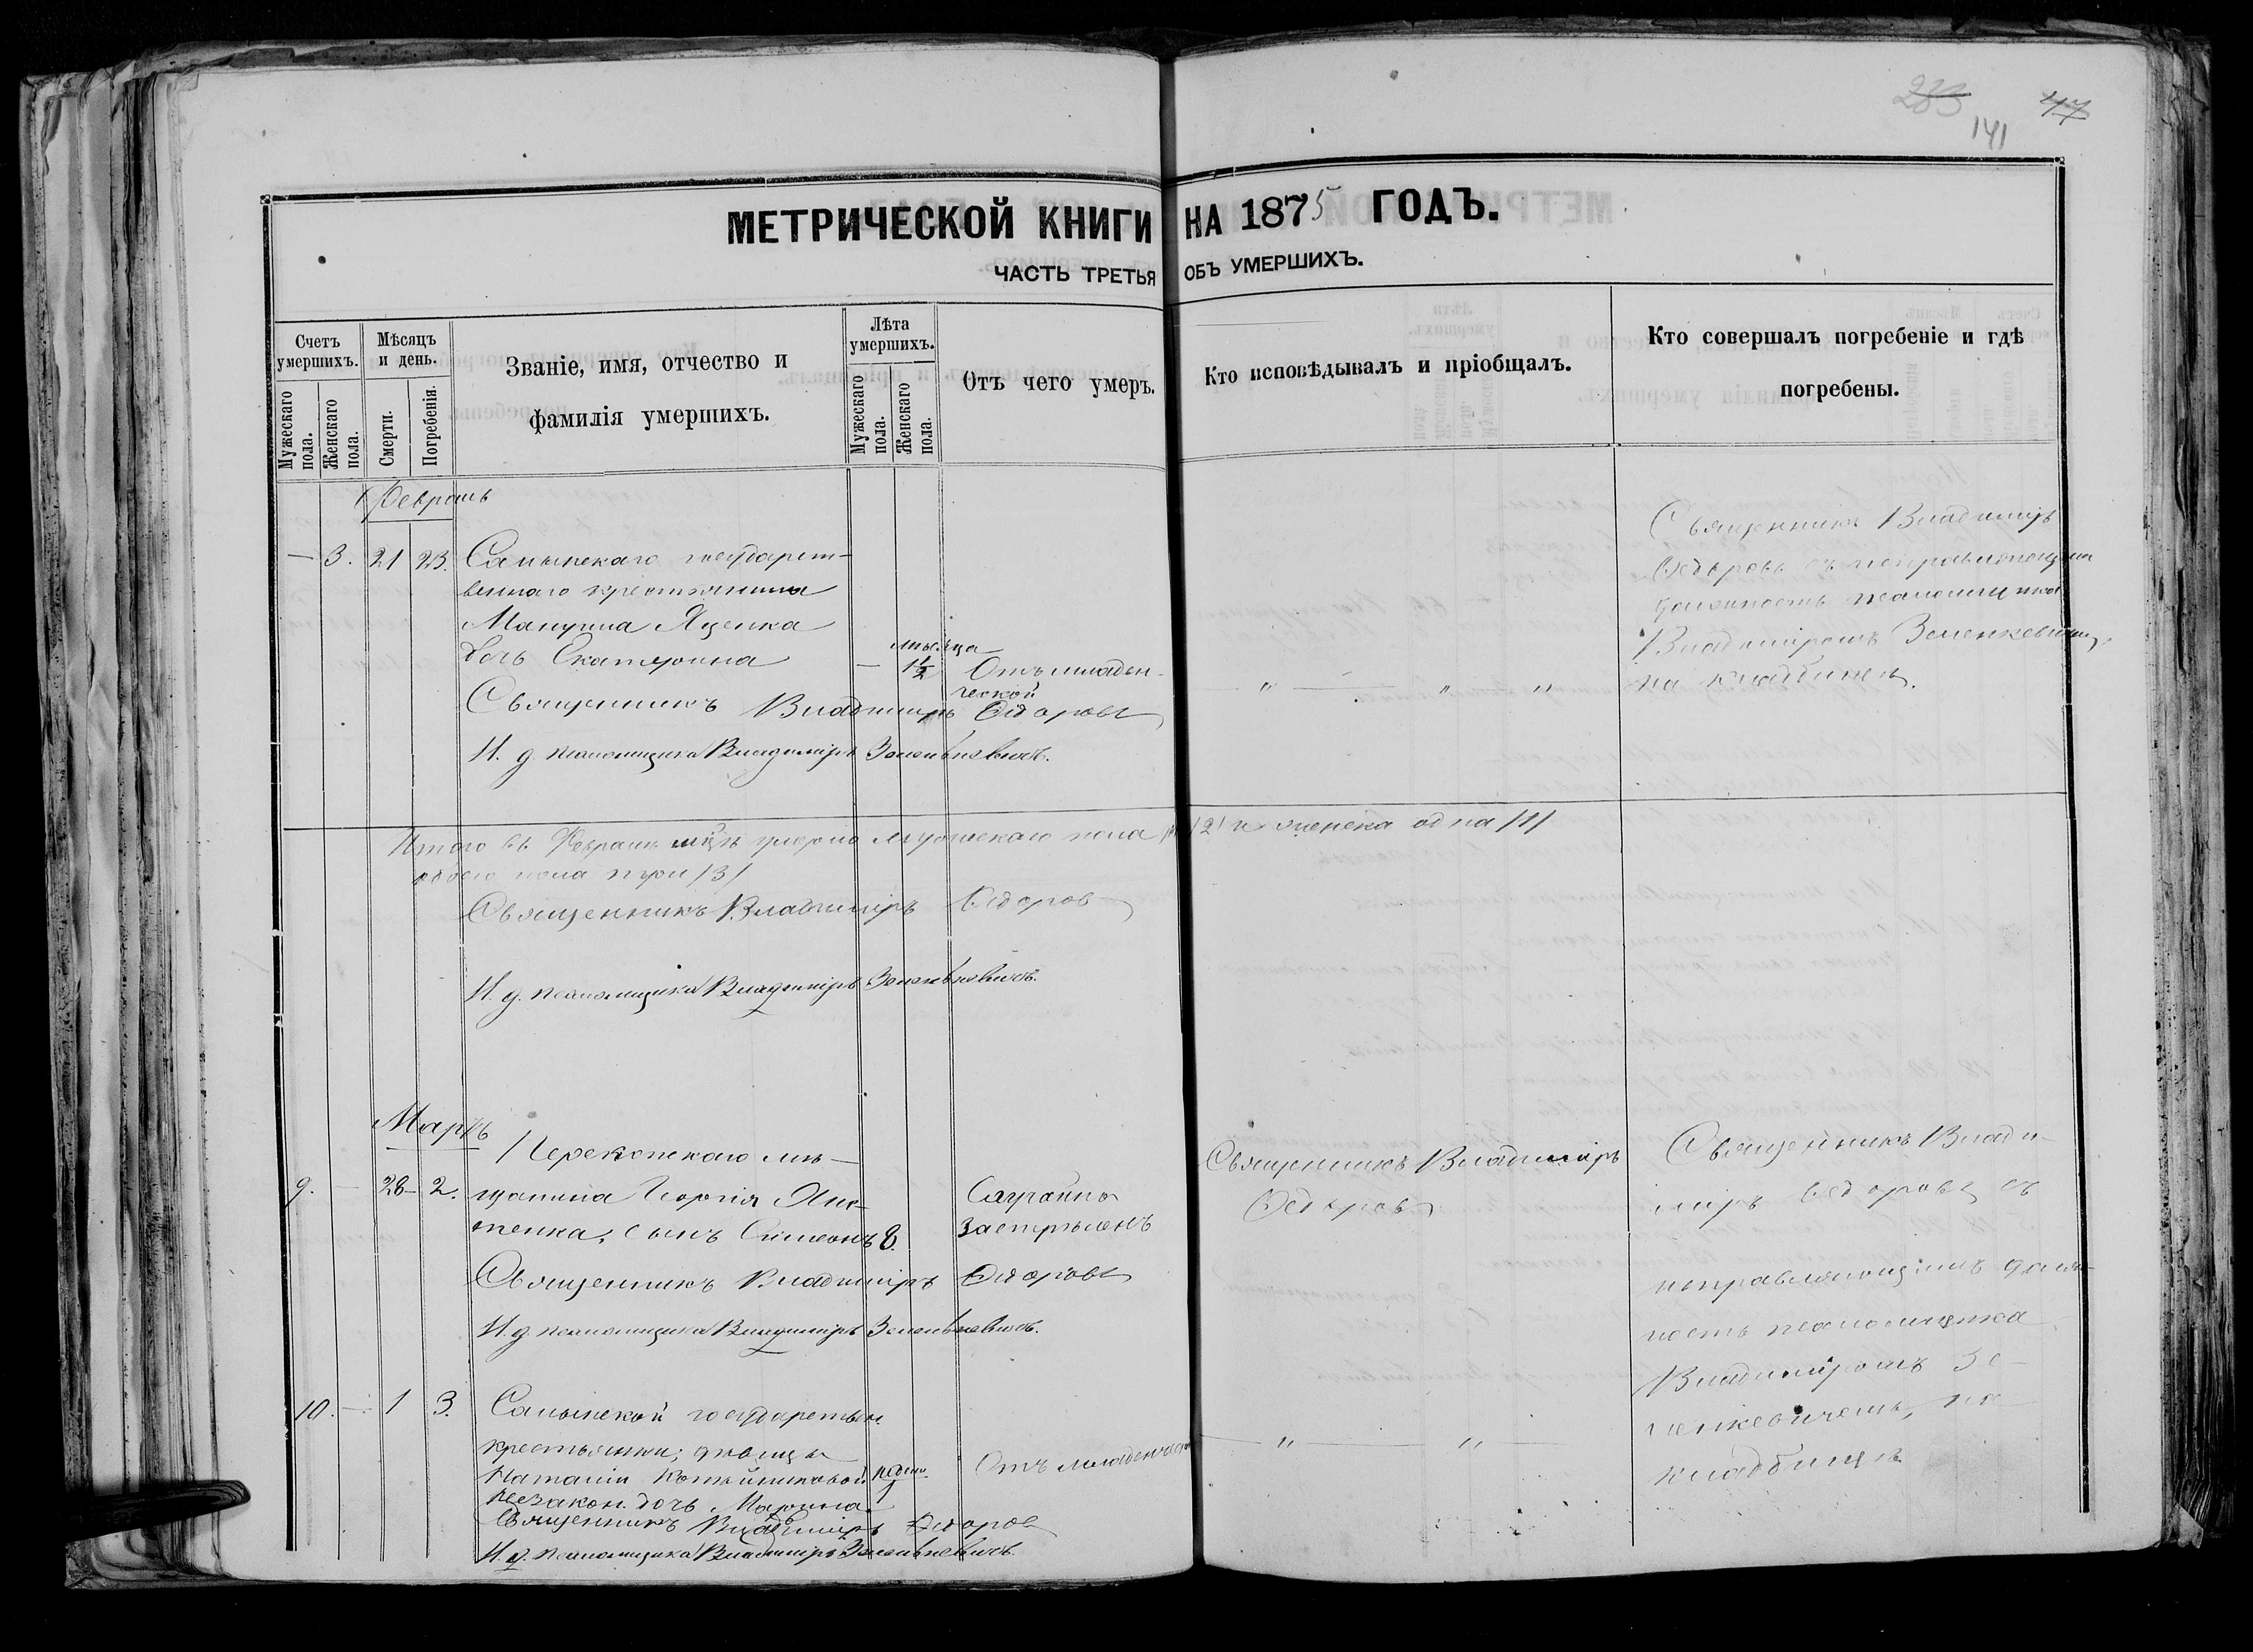 283 47
141
МЕТРИЧЕСКОЙ КНИГИ НА 1875 ГОДЪ.
ЧАСТЬ ТРЕТЬЯ ОБЪ УМЕРШИХЪ.
Счетъ умершихъ.
Мужескаго пола.
Женскаго пола.
Мѣсяцъ и день.
Смерти.
Погребенія.
Званіе, имя, отчество и
фамилія умершихъ.
Лѣта умершихъ.
Мужескаго пола.
Женскаго пола.
Отъ чего умеръ.
Кто исповѣдывалъ и пріобщалъ.
Кто совершалъ погребеніе и гдѣ
погребены.
Февраль
— 3. 21 23. государст-
веннаго крестьянина
Яценка
дочь Екатерина
мѣсяца
— 1½ Отъ младен-
ческой
Священникъ Владиміръ Ѳедоровъ
И. д. псаломщика Владиміръ Зеленкевичъ.
— " — " "
Священникъ Владиміръ
Ѳедоровъ съ исправляющимъ
должность псаломщика
Владиміромъ Зеленкевичемъ,
на кладбищѣ.
Итого въ Февралѣ умерло мужескаго пола /2/ и женска одна /1/
обоего пола три /3/
Священникъ Владиміръ Ѳедоровъ
И. д. псаломщика Владиміръ Зеленкевичъ.
Мартъ
Перекопскаго мѣ-
9. — 28 2. щанина Георгія
сынъ Симеонъ 8.
застрѣленъ
Священникъ Владиміръ Ѳедоровъ
И. д. псаломщика Владиміръ Зеленкевичъ.
Священникъ Владиміръ
Ѳедоровъ
Священникъ Влади-
міръ Ѳедоровъ съ
исправляющимъ долж-
ность псаломщика
Владиміромъ Зе-
ленкевичемъ, на
кладбищѣ
10. — 1 3. государствен.
крестьянки, дѣвицы
Наталіи
незакон. дочь Марина
1
Отъ младенческой
— " — " —
Священникъ Владиміръ Ѳедоровъ
И. д. псаломщика Владиміръ Зеленкевичъ.